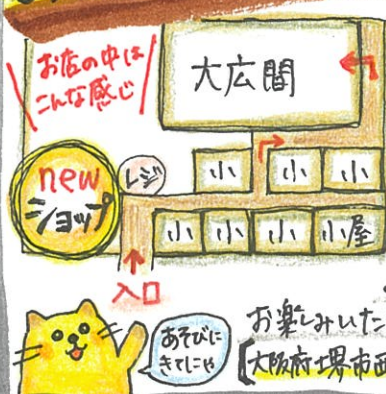 お店の中は
こんな感じ
大広間
new
ショップ
レジ
小 小 小
小 小 小 小屋
入口
あそびに
きてにゃ
お楽しみいた
【大阪府堺市西